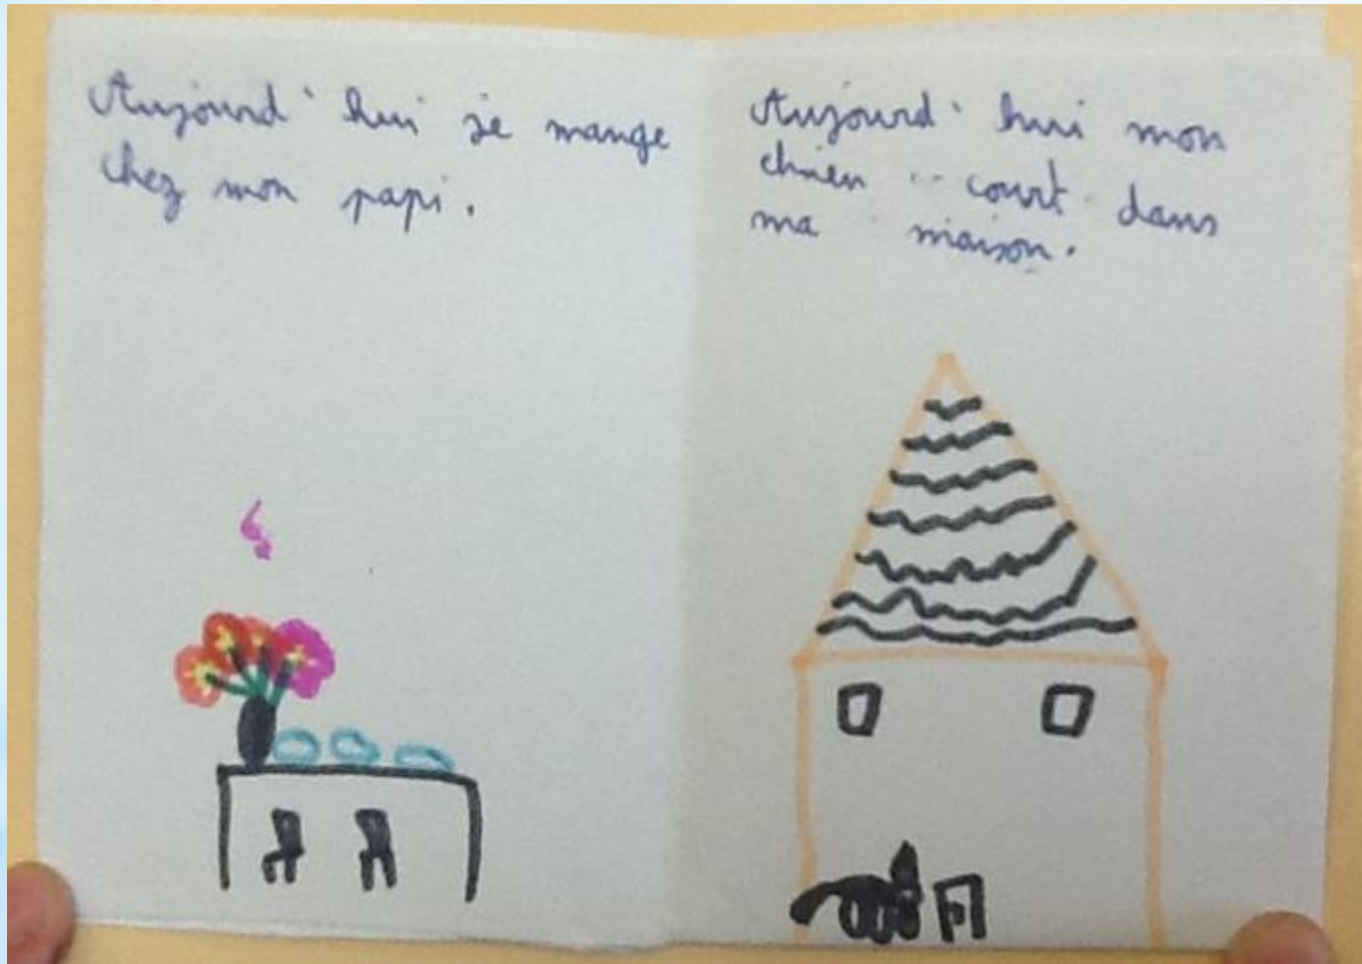 Aujourd'hui je mange
chez mon papi.
Aujourd'hui mon
chien court dans
ma maison.